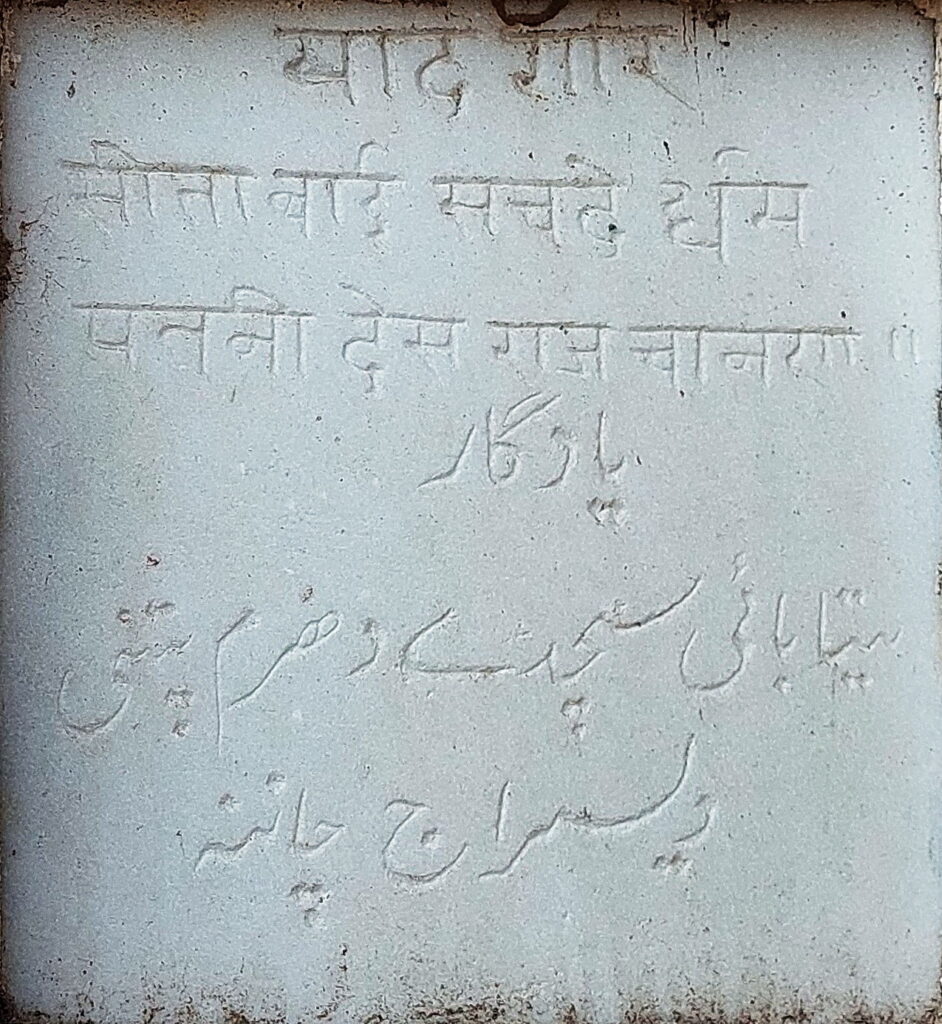 याद गार
सीता बाई सचदे र्धम
पतनी देस राज चानरण ॥
یادگار
سیتا بائی سچدے دھرم پتنی
دیسراج چاننہ